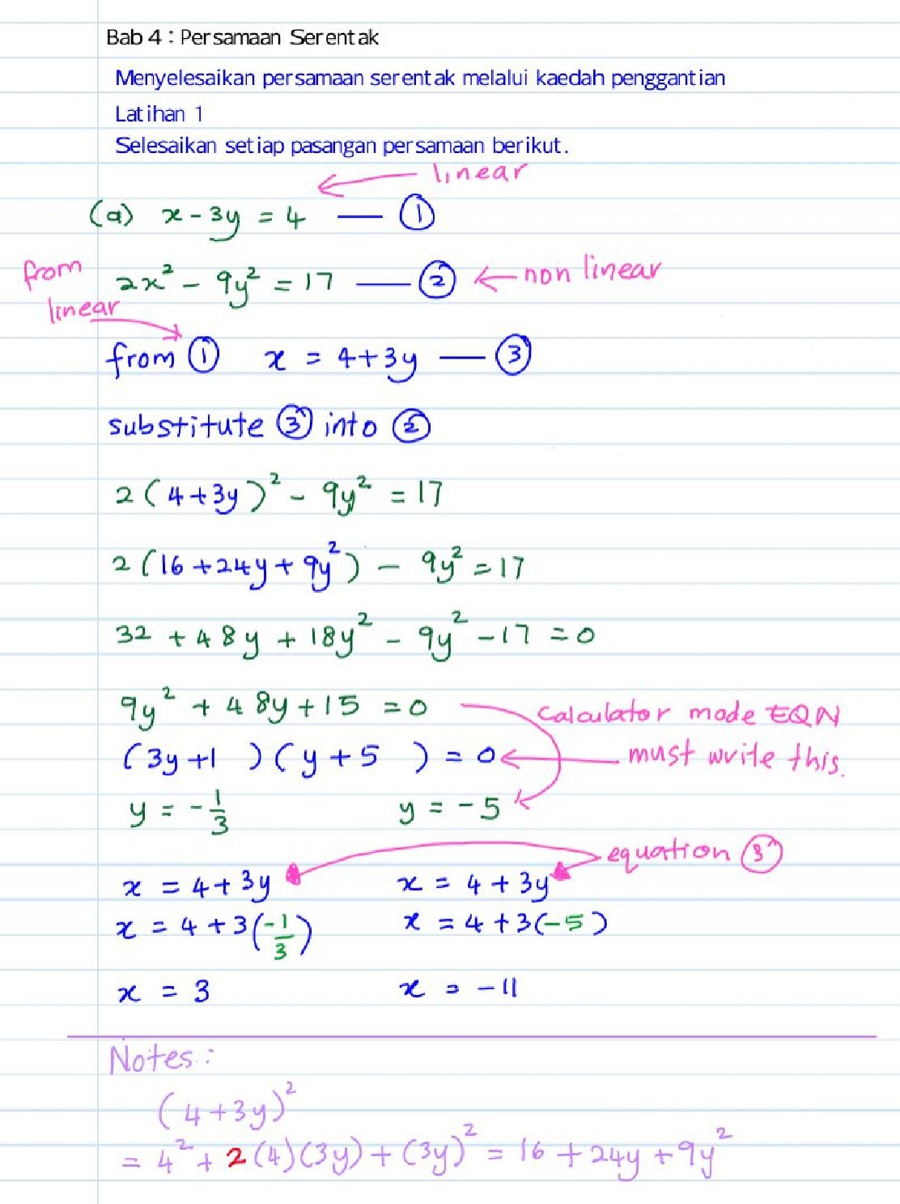 Bab 4 : Persamaan Serentak
Menyelesaikan persamaan serentak melalui kaedah penggantian
Latihan 1
Selesaikan setiap pasangan persamaan berikut.
linear
(a) x - 3y = 4 — ①
from linear
2x² - 9y² = 17 — ② ← non linear
from ① x = 4+3y — ③
substitute ③ into ②
2(4+3y)² - 9y² = 17
2(16+24y+9y²) - 9y² = 17
32 + 48y + 18y² - 9y² - 17 = 0
9y² + 48y + 15 = 0 calculator mode EQN
(3y+1 )(y+5 ) = 0 ← must write this.
y = -1/3 y = -5
equation ③
x = 4+3y x = 4+3y
x = 4+3(-1/3) x = 4+3(-5)
x = 3 x = -11
Notes :
(4+3y)²
= 4² + 2(4)(3y) + (3y)² = 16 + 24y + 9y²